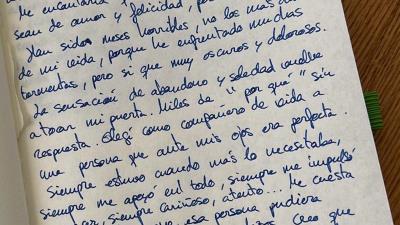 Me encantaría
sean de amor y felicidad, por
Han sido meses horribles, no los más du
de mi vida, porque he enfrentado muchas
tormentas, pero si que muy oscuros y dolorosos.
La sensación de abandono y soledad vuelve
a tocar mi puerta. Miles de "por qué" sin
respuesta. Elegí como compañero de vida a
una persona que ante mis ojos era perfecta.
Siempre estuvo cuando más lo necesitaba,
siempre me apoyó en todo, siempre me impulsó
siempre cariñoso, atento... Me cuesta
esa persona pudiera
Creo que